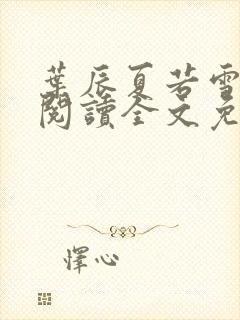 葉辰夏若雪
閱讀全文免
懌心